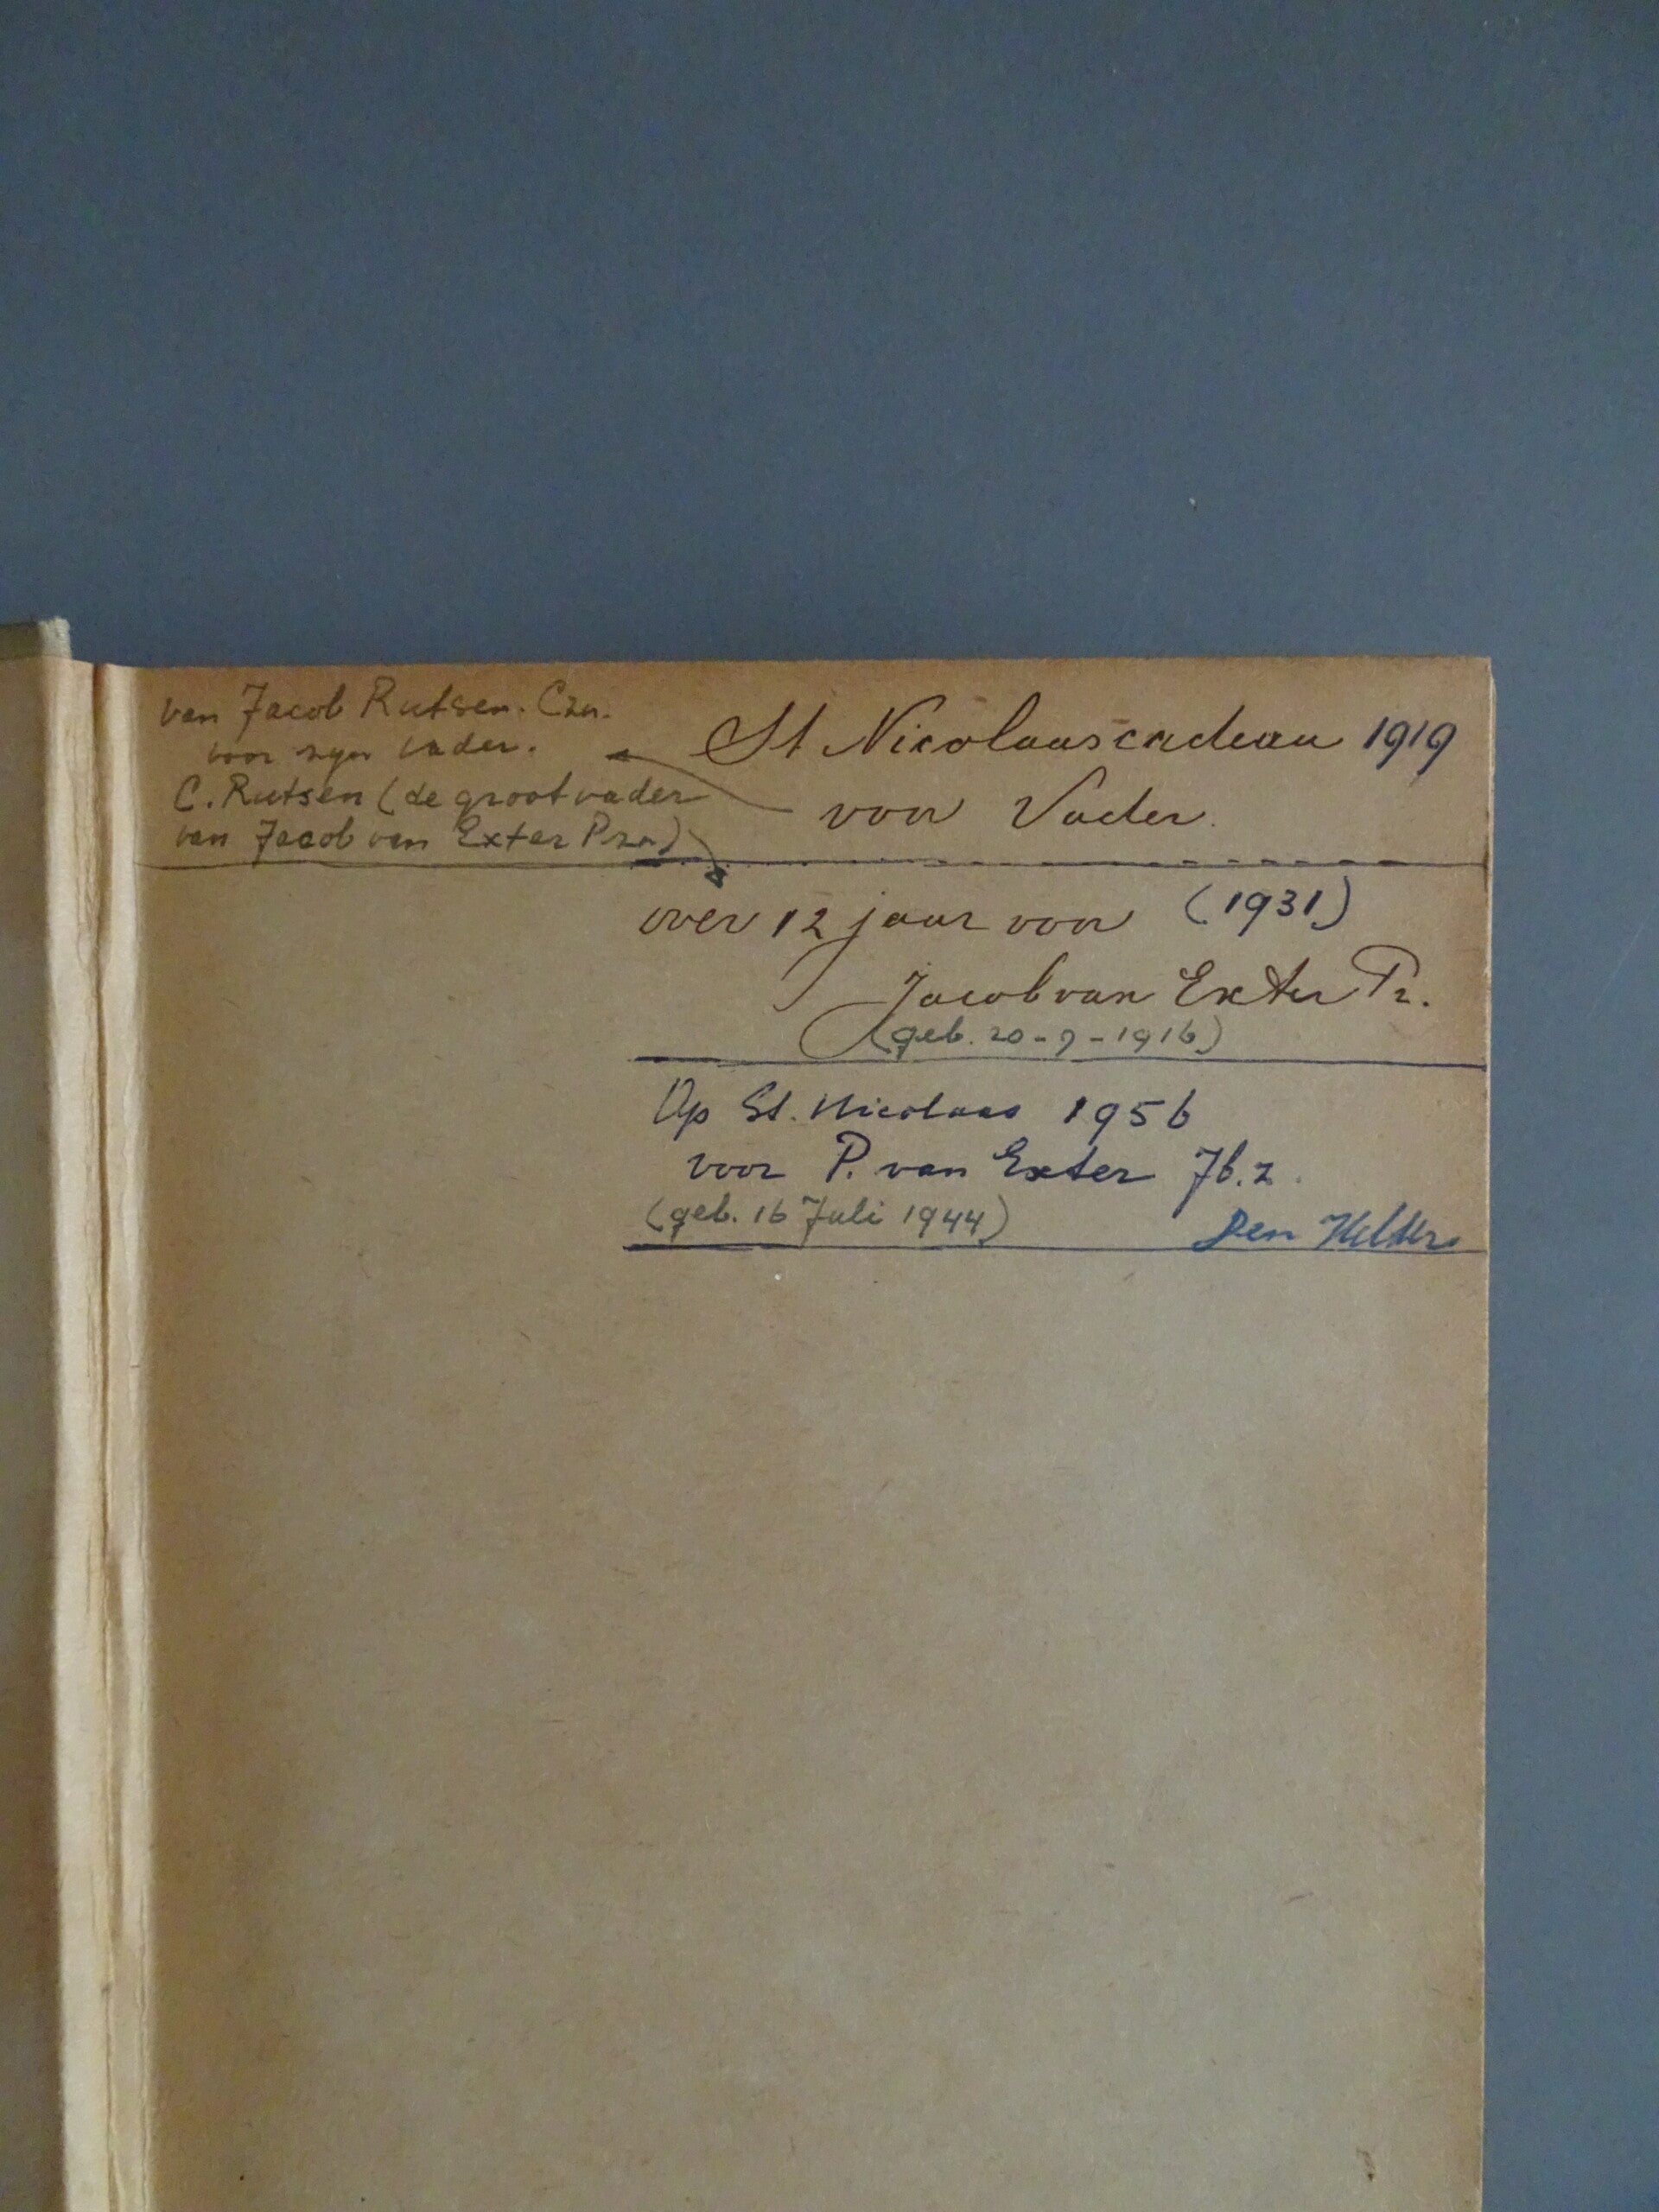 van Jacob Rutsen. Czn.
voor zijn vader.
C. Rutsen (de grootvader
van Jacob van Exter Pzn)
St Nicolaascadeau 1919
voor Vader.
over 12 jaar voor (1931)
Jacob van Exter Pz.
(geb. 20-9-1916)
Op St. Nicolaas 1956
voor P. van Exter Jb.z.
(geb. 16 Juli 1944)
Den Helder